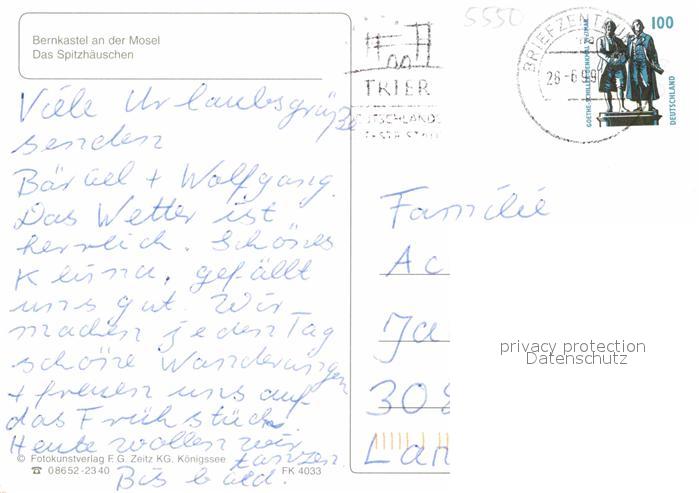 Bernkastel an der Mosel
Das Spitzhäuschen
Viele Urlaubsgrüße
senden
Bärbel + Wolfgang.
Das Wetter ist
herrlich. Schönes
Klima, gefällt
uns gut. Wir
machen jeden Tag
schöne Wanderungen
+ freuen uns auf
das Frühstück.
Heute wollen wir
tanzen.
Bis bald.
© Fotokunstverlag F. G. Zeitz KG, Königssee
☎ 08652-2340
FK 4033
5550
TRIER
DEUTSCHLANDS
BRIEFZENTRUM
100
GOETHE-SCHILLER-DENKMAL WEIMAR
DEUTSCHLAND
Familie
Ac
Ja
308
Lan
privacy protection
Datenschutz